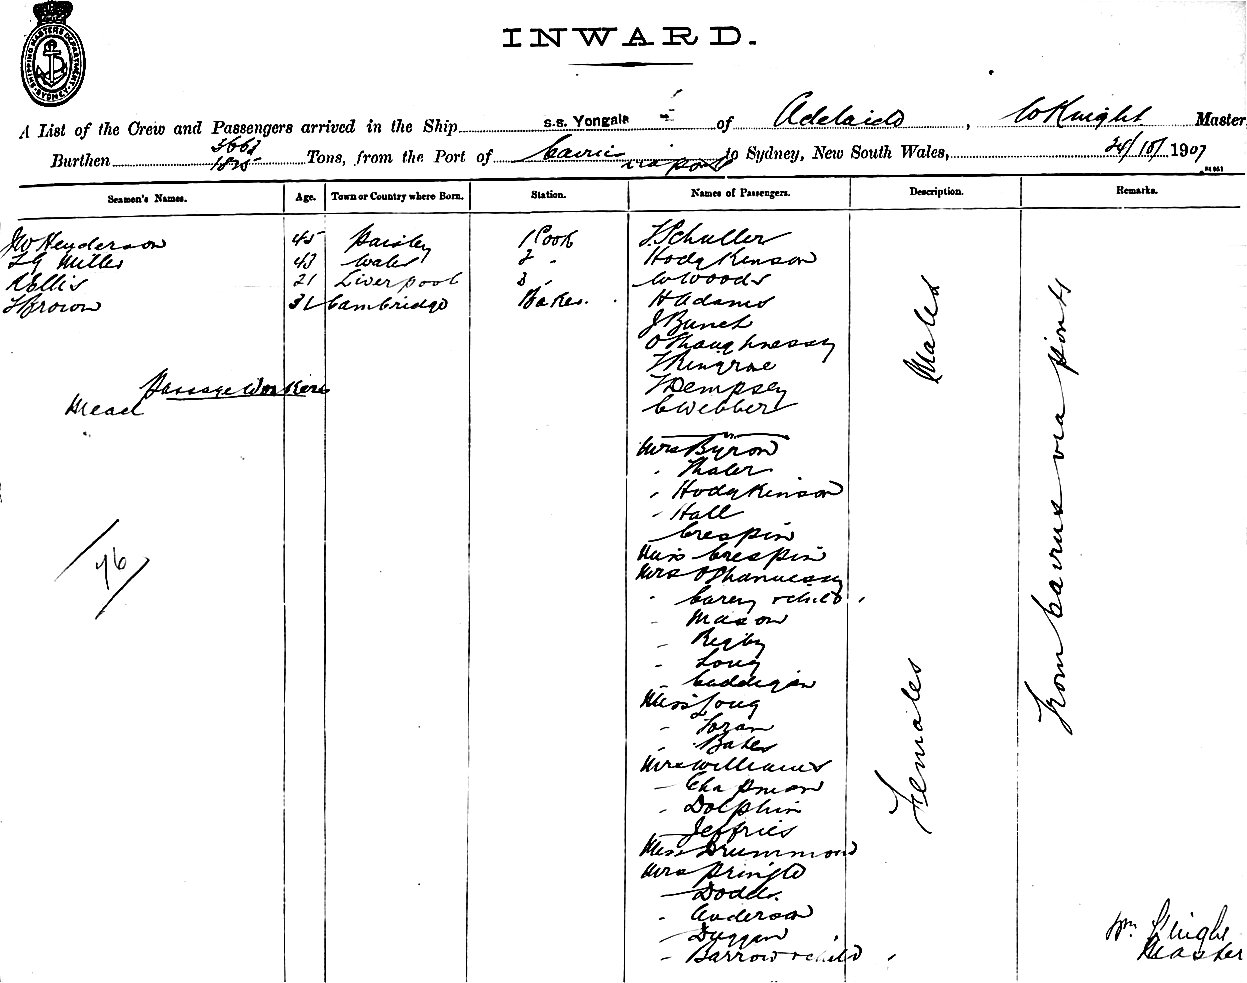 INWARD.
SHIPPING MASTERS DEPARTMENT SYDNEY
A List of the Crew and Passengers arrived in the Ship s.s. Yongala of Adelaide, W Knight Master
Burthen 3663 1825 Tons, from the Port of Cairns via ports to Sydney, New South Wales, 1907
Seamen's Names. Age. Town or Country where Born. Station. Names of Passengers. Description. Remarks.
JW Heyderson 45 Paisley 1 Cook F Schuller
Miller 43 Wales 2 " Hodgkinson
R Ellis 21 Liverpool 3 " W Woods
Brown 31 Cambridge Baker. H Adams
J Bunch
O'Shaughnessy
T Dempsey
C Webber
Males
Passage Workers
Mead
Mrs Byron
" Thaler
" Hodgkinson
" Hall
Crespin
Miss Crespin
Mrs O'Shannessy
" Carey & child
" Mason
" Rigby
" Long
" Caddigan
Miss Long
" Foran
" Baker
Mrs Williams
" Chapman
" Dolphin
" Jeffries
Miss Drummond
Mrs Pringle
" Dodds.
" Anderson
" Duggan
" Barrow & child
Females
From Cairns via Ports
76
Wm Knight
Master